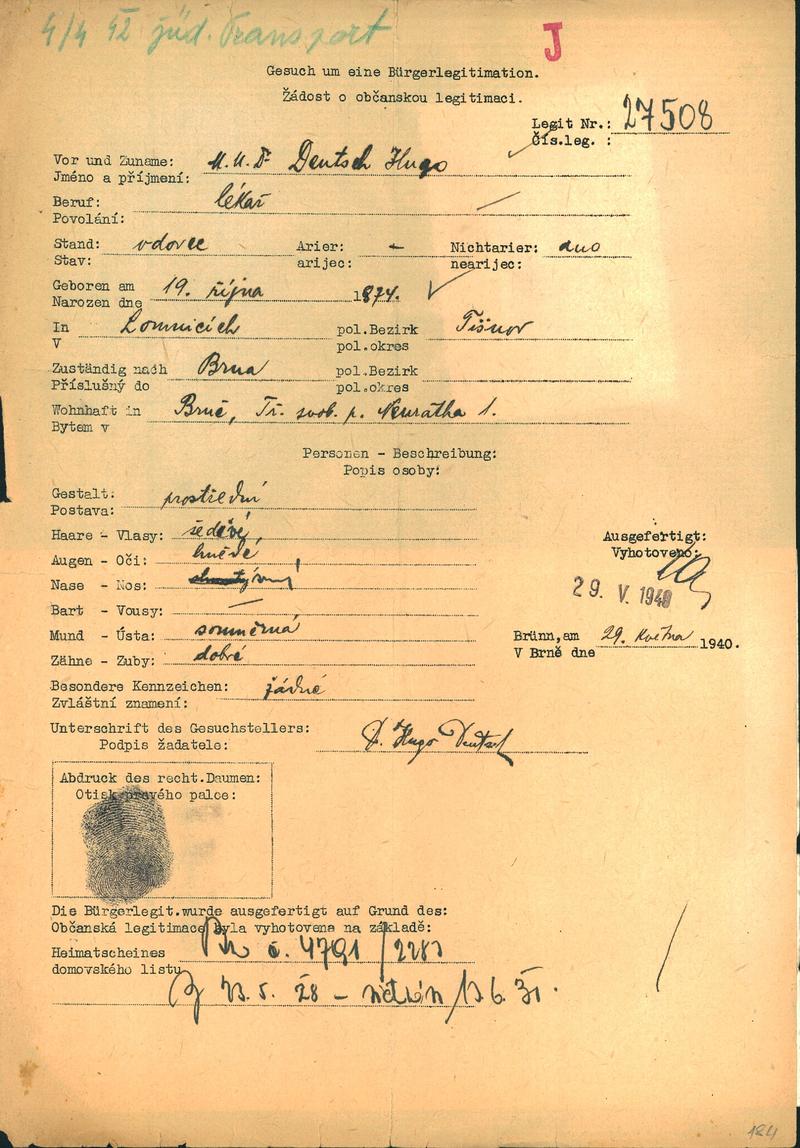 4/4 42 jüd. Transport
J
Gesuch um eine Bürgerlegitimation.
Žádost o občanskou legitimaci.
Legit Nr.: 27508
čís.leg. :
Vor und Zuname: M.U.Dr Deutsch Hugo
Jméno a příjmení:
Beruf: lékař
Povolání:
Stand: vdovec Arier: – Nichtarier: ano
Stav: arijec: nearijec:
Geboren am 19. října 1874.
Narozen dne
In Lomnicích pol.Bezirk Tišnov
V pol.okres
Zuständig nach Brna pol.Bezirk
Příslušný do pol.okres
Wohnhaft in Brně, Tř. svob. p. Neuratha 1.
Bytem v
Personen - Beschreibung:
Popis osoby:
Gestalt: prostřední
Postava:
Haare - Vlasy: šedivé,
Augen - Oči: hnědé,
Nase - Nos:
Bart - Vousy: —
Mund - Ústa: souměrná
Zähne - Zuby: dobré
Besondere Kennzeichen: žádné
Zvláštní znamení:
Ausgefertigt:
Vyhotoveno:
29. V. 1940
Brünn,am 29. května 1940.
V Brně dne
Unterschrift des Gesuchstellers: Dr. Hugo Deutsch
Podpis žadatele:
Abdruck des recht.Daumen:
Otisk pravého palce:
Die Bürgerlegit.wurde ausgefertigt auf Grund des:
Občanská legitimace byla vyhotovena na základě:
Heimatscheines č. 4791
domovského listu
184